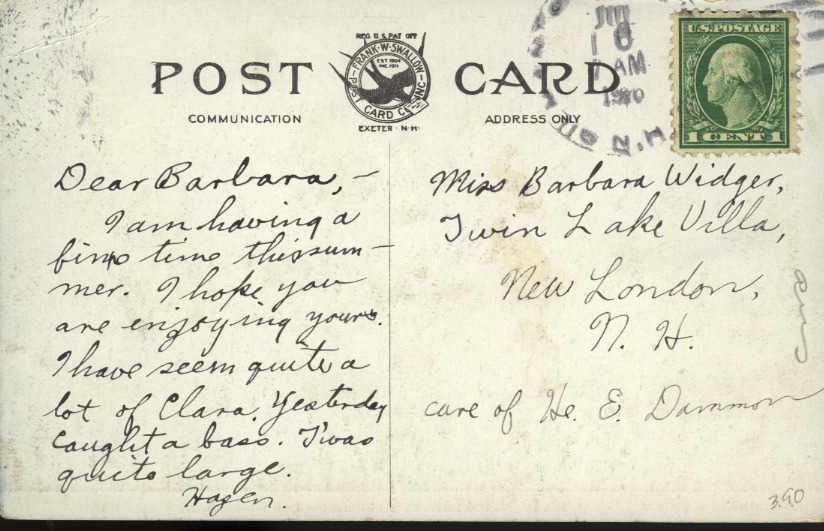 REG. U.S. PAT. OFF.
FRANK·W·SWALLOW
EST 1904
INC. 1911
POST CARD CO. INC.
EXETER · N·H·
POST CARD
COMMUNICATION
ADDRESS ONLY
10
AM
N.H.
U.S. POSTAGE
1 CENT 1
Dear Barbara, –
I am having a
fine time this sum–
mer. I hope you
are enjoying yours.
I have seem quite a
lot of Clara. Yesterday
caught a bass. T'was
quite large.
Hagen.
Miss Barbara Widger,
Twin Lake Villa,
New London,
N. H.
care of He. E. Dammon
3.90